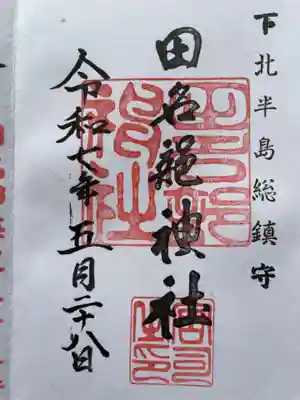 下北半島総鎮守
田名部神社
令和七年五月二十八日